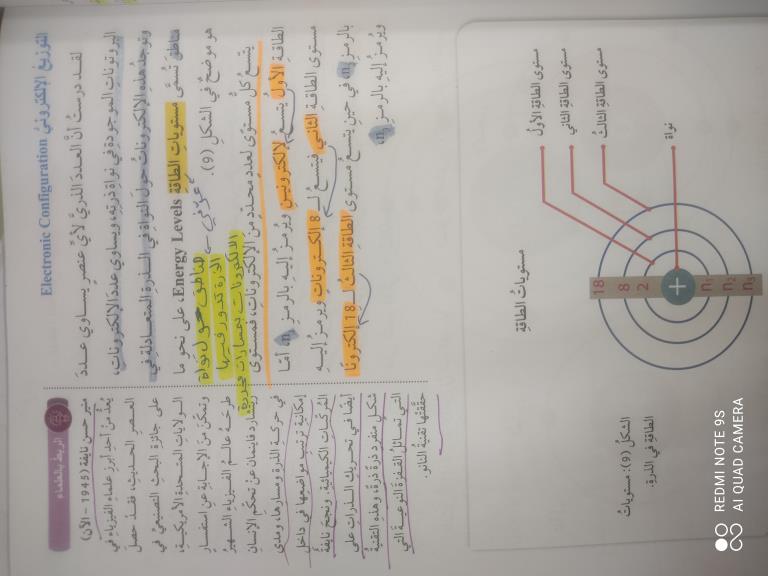 التوزيع الإلكتروني Electronic Configuration
لقد درستُ أنّ العددَ الذريَّ لأيِّ عنصرٍ يساوي عددَ
البروتوناتِ الموجودةِ في نواةِ ذرتِهِ، ويساوي عددَ الإلكتروناتِ،
وتوجدُ هذهِ الإلكتروناتُ حولَ النواةِ في الذرةِ المتعادلةِ في
مناطقَ تُسمّى مستوياتِ الطاقةِ Energy Levels، على نحوِ ما
هو موضحٌ في الشكلِ (9). عرّفي
مناطق حول نواة
الذرة تدور فيها
الالكترونات بمسارات محددة
يتّسعُ كلُّ مستوًى لعددٍ محدّدٍ منَ الإلكتروناتِ، فمستوى
الطاقةِ الأولُ يتّسعُ لإلكترونينِ ويُرمزُ إليهِ بالرمزِ n₁، أمّا
مستوى الطاقةِ الثاني فيتّسعُ لـ 8 إلكتروناتٍ ويُرمزُ إليهِ
بالرمزِ n₂، في حينِ يتّسعُ مستوى الطاقةِ الثالثُ لـ 18 إلكترونًا
ويُرمزُ إليهِ بالرمزِ n₃.
الربط بالعلماء
منير حسن نايفة (1945 - الآن)
يُعدُّ منْ أحدِ أبرزِ علماءِ الفيزياءِ في
العصرِ الحديثِ، فقدْ حصلَ
على جائزةِ البحثِ التصنيعيِّ في
الولاياتِ المتحدةِ الأمريكيةِ،
وتمكّنَ منَ الإجابةِ عنِ استفسارٍ
طرحَهُ عالمُ الفيزياءِ الشهيرُ
ريتشارد فاينمان عنْ تحكّمِ الإنسانِ
في حركةِ الذرةِ ومسارِها، ومدى
إمكانيةِ ترتيبِ مواضعِها في داخلِ
المركباتِ الكيميائيةِ. ونجحَ نايفةُ
أيضًا في تحريكِ الذراتِ على
شكلٍ منفردٍ ذرةً ذرةً، وهذهِ التقنيةُ
التي تماثلُ القفزةَ النوعيةَ التي
حققتْها تقنيةُ النانو.
مستوياتُ الطاقةِ
مستوى الطاقةِ الأولُ
مستوى الطاقةِ الثاني
مستوى الطاقةِ الثالثُ
نواة
18
8
2
+
n₁
n₂
n₃
الشكلُ (9): مستوياتُ
الطاقةِ في الذرةِ.
REDMI NOTE 9S
AI QUAD CAMERA